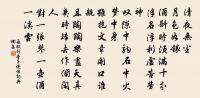 清夜無塵
月色如銀
酒斟時須滿十分
浮名浮利虛苦勞
神
歎隙中駒石中火
夢中身
雖抱文章開口誰
親
且陶陶樂盡天真
幾時歸去作個閒
人
對一張琴一壺酒
一溪雲